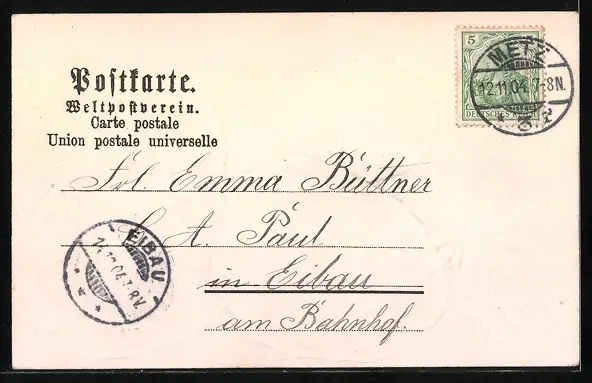 Postkarte.
Weltpostverein.
Carte postale
Union postale universelle
5
DEUTSCHES REICH
METZ
12.11.04.7-8N.
Frl. Emma Büttner
A. Paul
in Eibau
am Bahnhof.
EIBAU